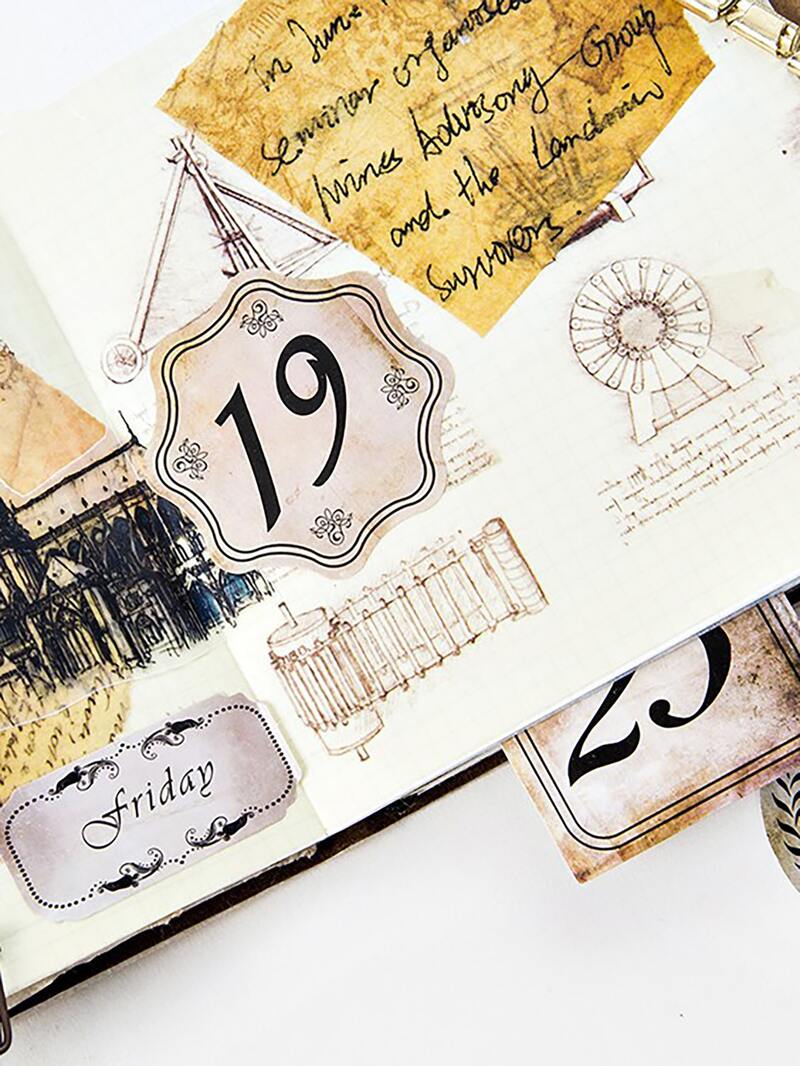 In June
seminar organised
Mines Advisory Group
and the Landmine
Survivors.
19
25
Friday